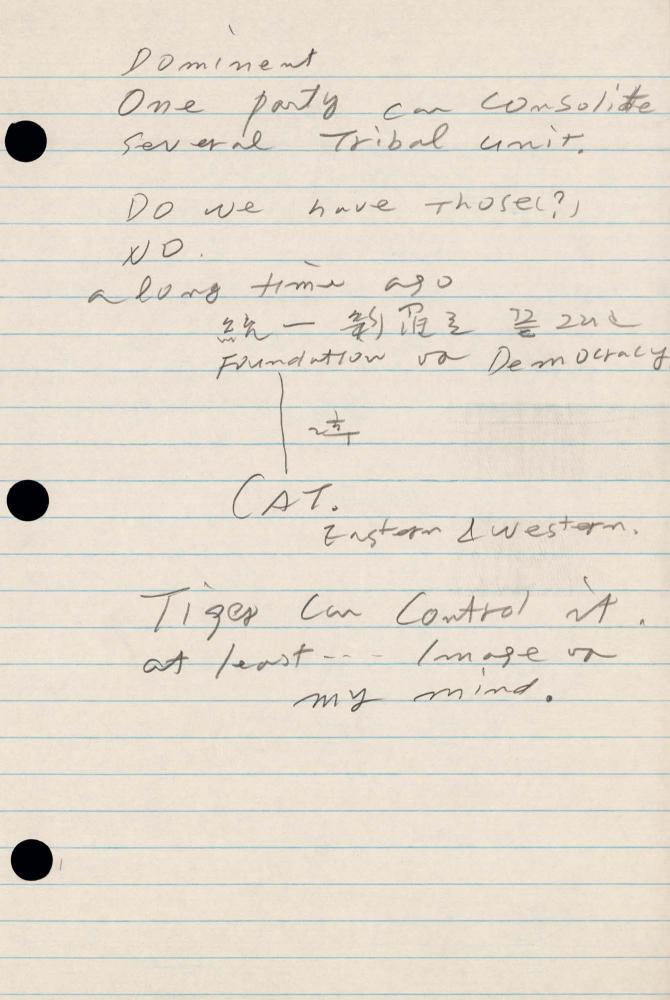 Dominent
One party can consolidte
several Tribal unit.
DO we have Those(?)
NO.
a long time ago
統一 新羅로 끝
Foundation Democracy
CAT.
Eastern & Western.
Tiger Can Control it.
at least ---- Image
my mind.